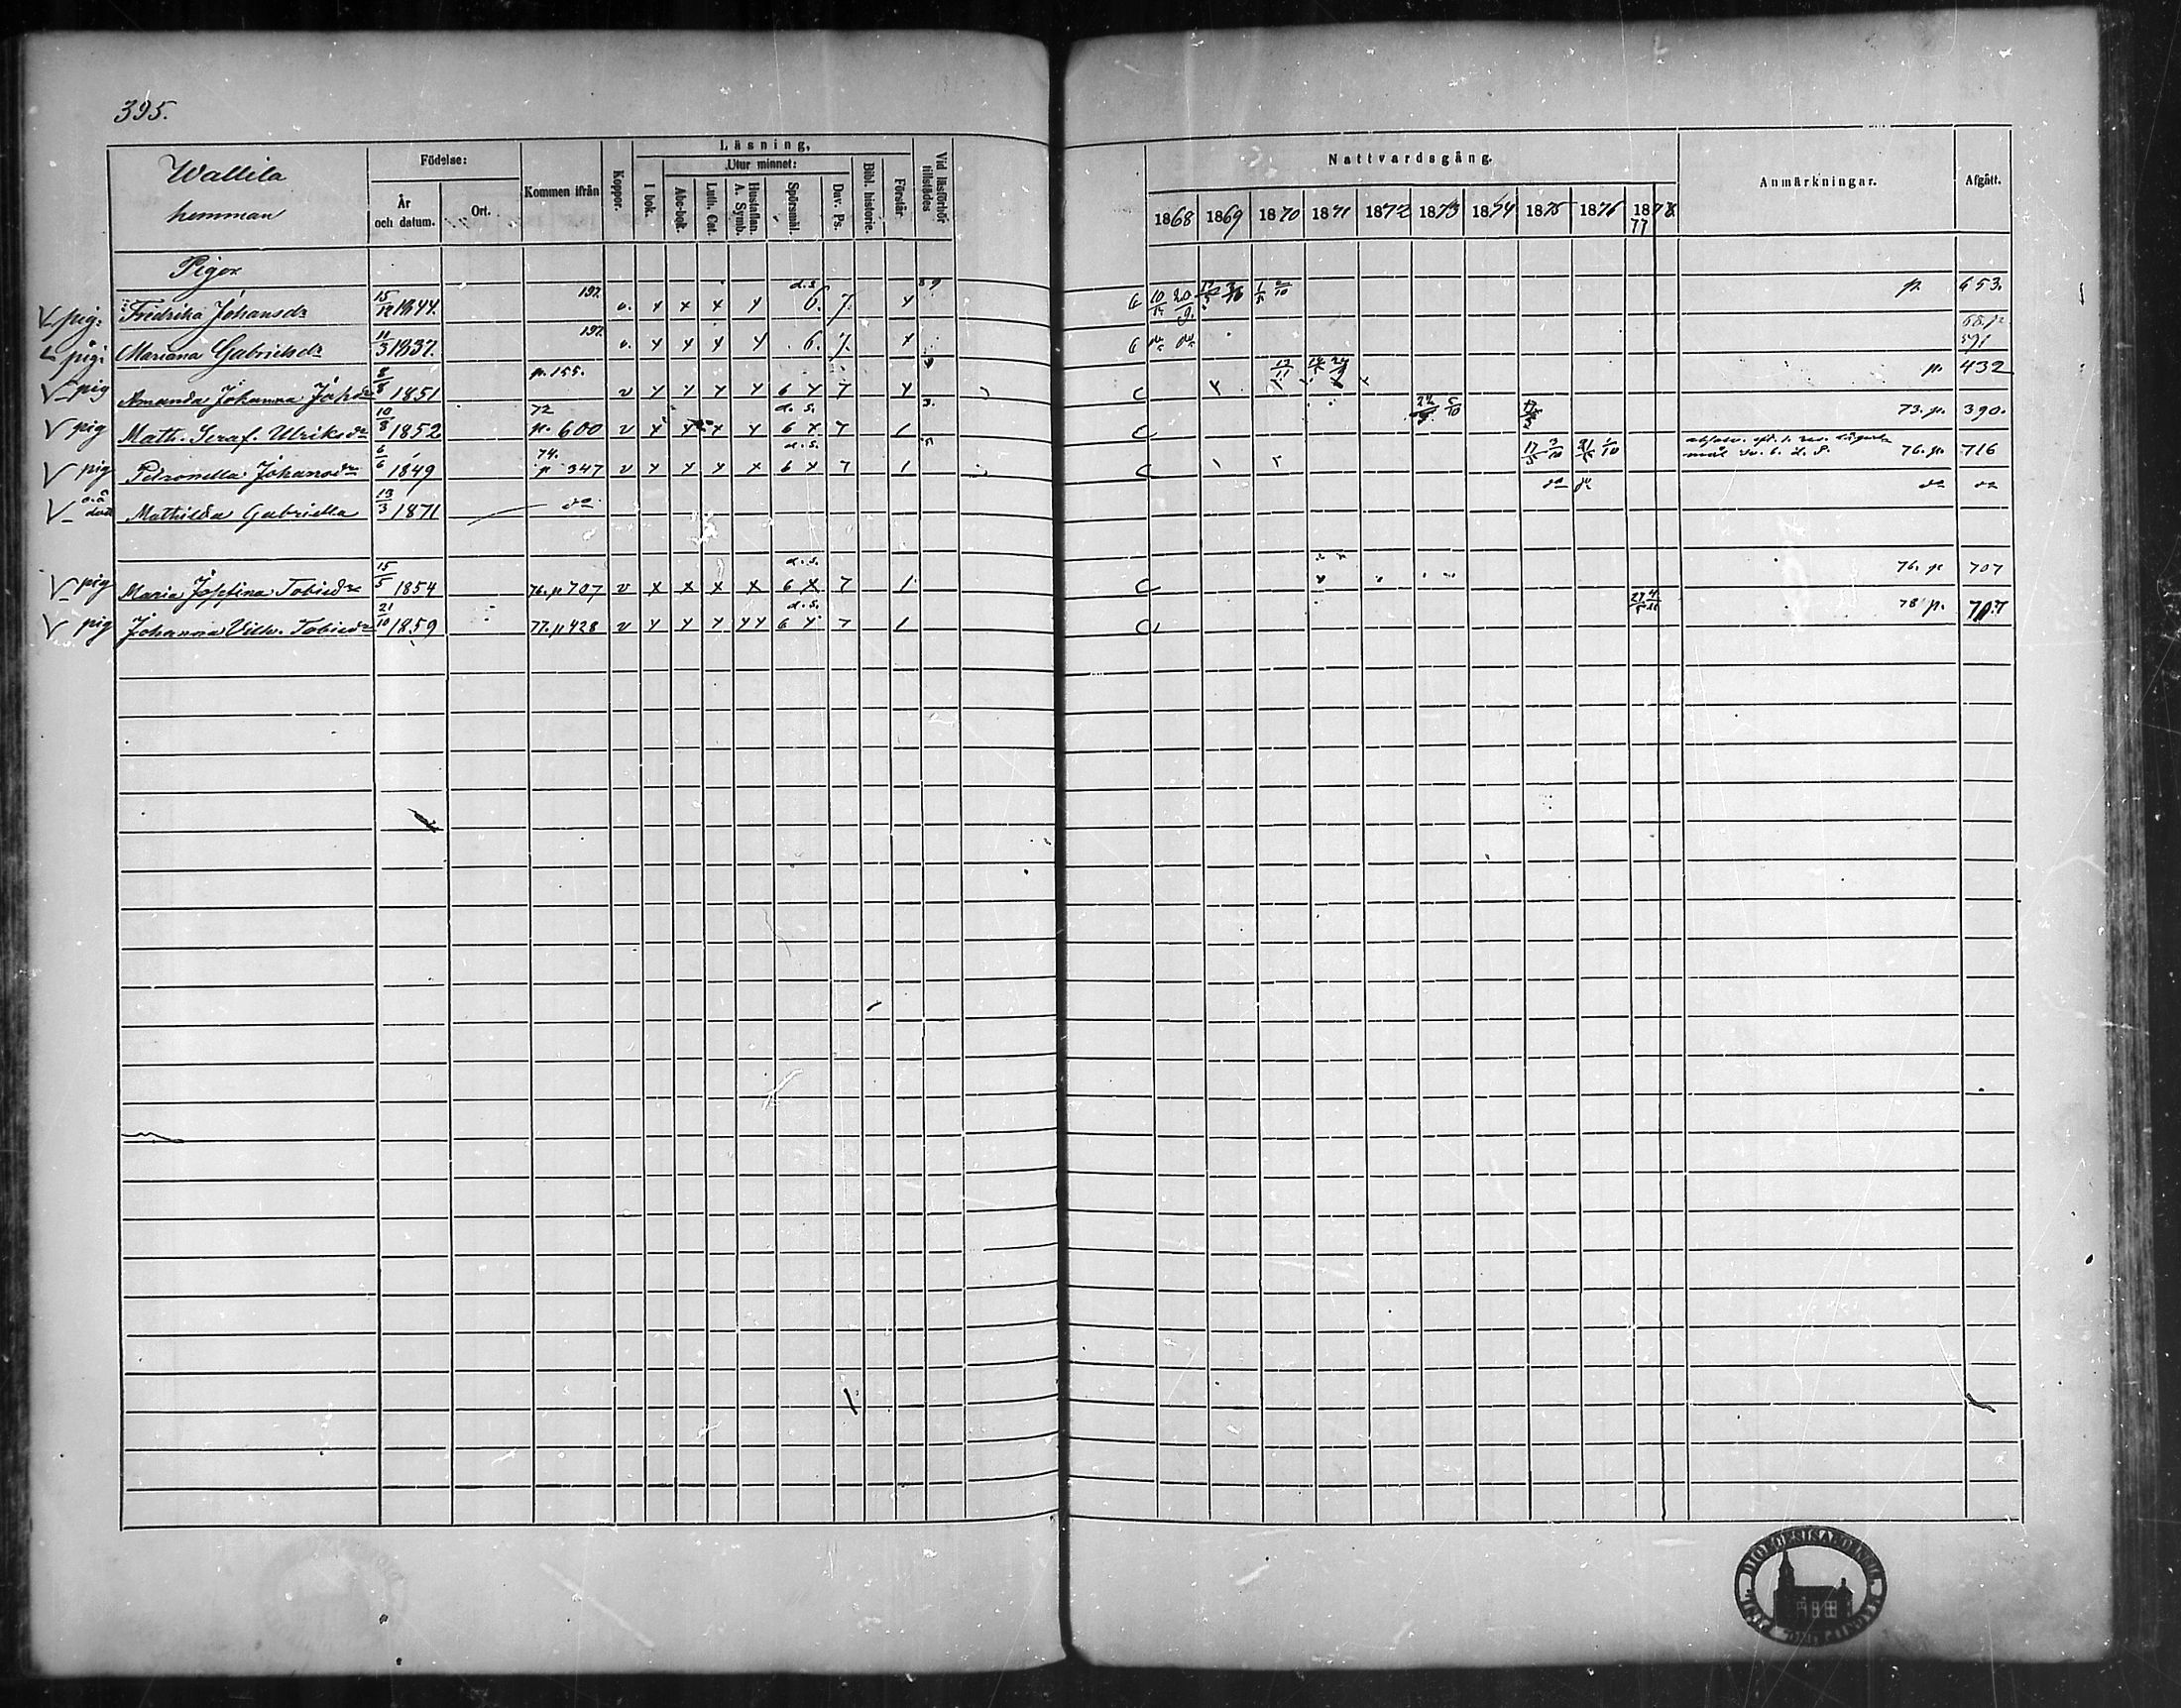 395.
Wallila
hemman
Födelse:
År
och datum.
Ort.
Kommen ifrån
Koppor.
Läsning,
I bok.
Utur minnet:
Abc-bok.
Luth. Cat.
Hustaflan.
A. Symb.
Spörsmål.
Dav. Ps.
Bibl. historie.
Förstår
Vid läsförhör
tillstädes
Nattvardsgång.
1868 1869 1870 1871 1872 1873 1874 1875 1876 1877 78
Anmärkningar.
Afgått.
Pigor
pig: Fredrika Johansdr 15/12 1844. 197. v. x x x x d.s. 6. 7. x 10/12 20/9 p. 653.
pig: Mariana Gabrielsdr 11/3 1837. 197. v. x x x x 6. 7. x do do 68. p. 591
pig Amanda Johanna Johdr 8/8 1851 p. 155. v x x x x 6 x 7 x C p. 432
pig Math. Seraf. Ulriksdr 10/8 1852 72 p. 600 v x x x x d. s. 6 x 7 1 C 5/10 73. p. 390.
pig Petronella Johansdr 6/6 1849 74. p 347 v x x x x d. s. 6 x 7 1 C 17/5 3/10 21/5 1/10 76. p. 716
o.ä. dotr Mathilda Gabriella 13/3 1871 do do do do do
pig Maria Josefina Tobiedr 15/5 1854 76. p 707 v x x x x d. s. 6 x 7 1 C 76. p 707
pig Johanna Vilh. Tobiedr 21/10 1859 77. p 428 v x x x xx d. s. 6 x 7 1 C 27/5 4/11 78 p. 707